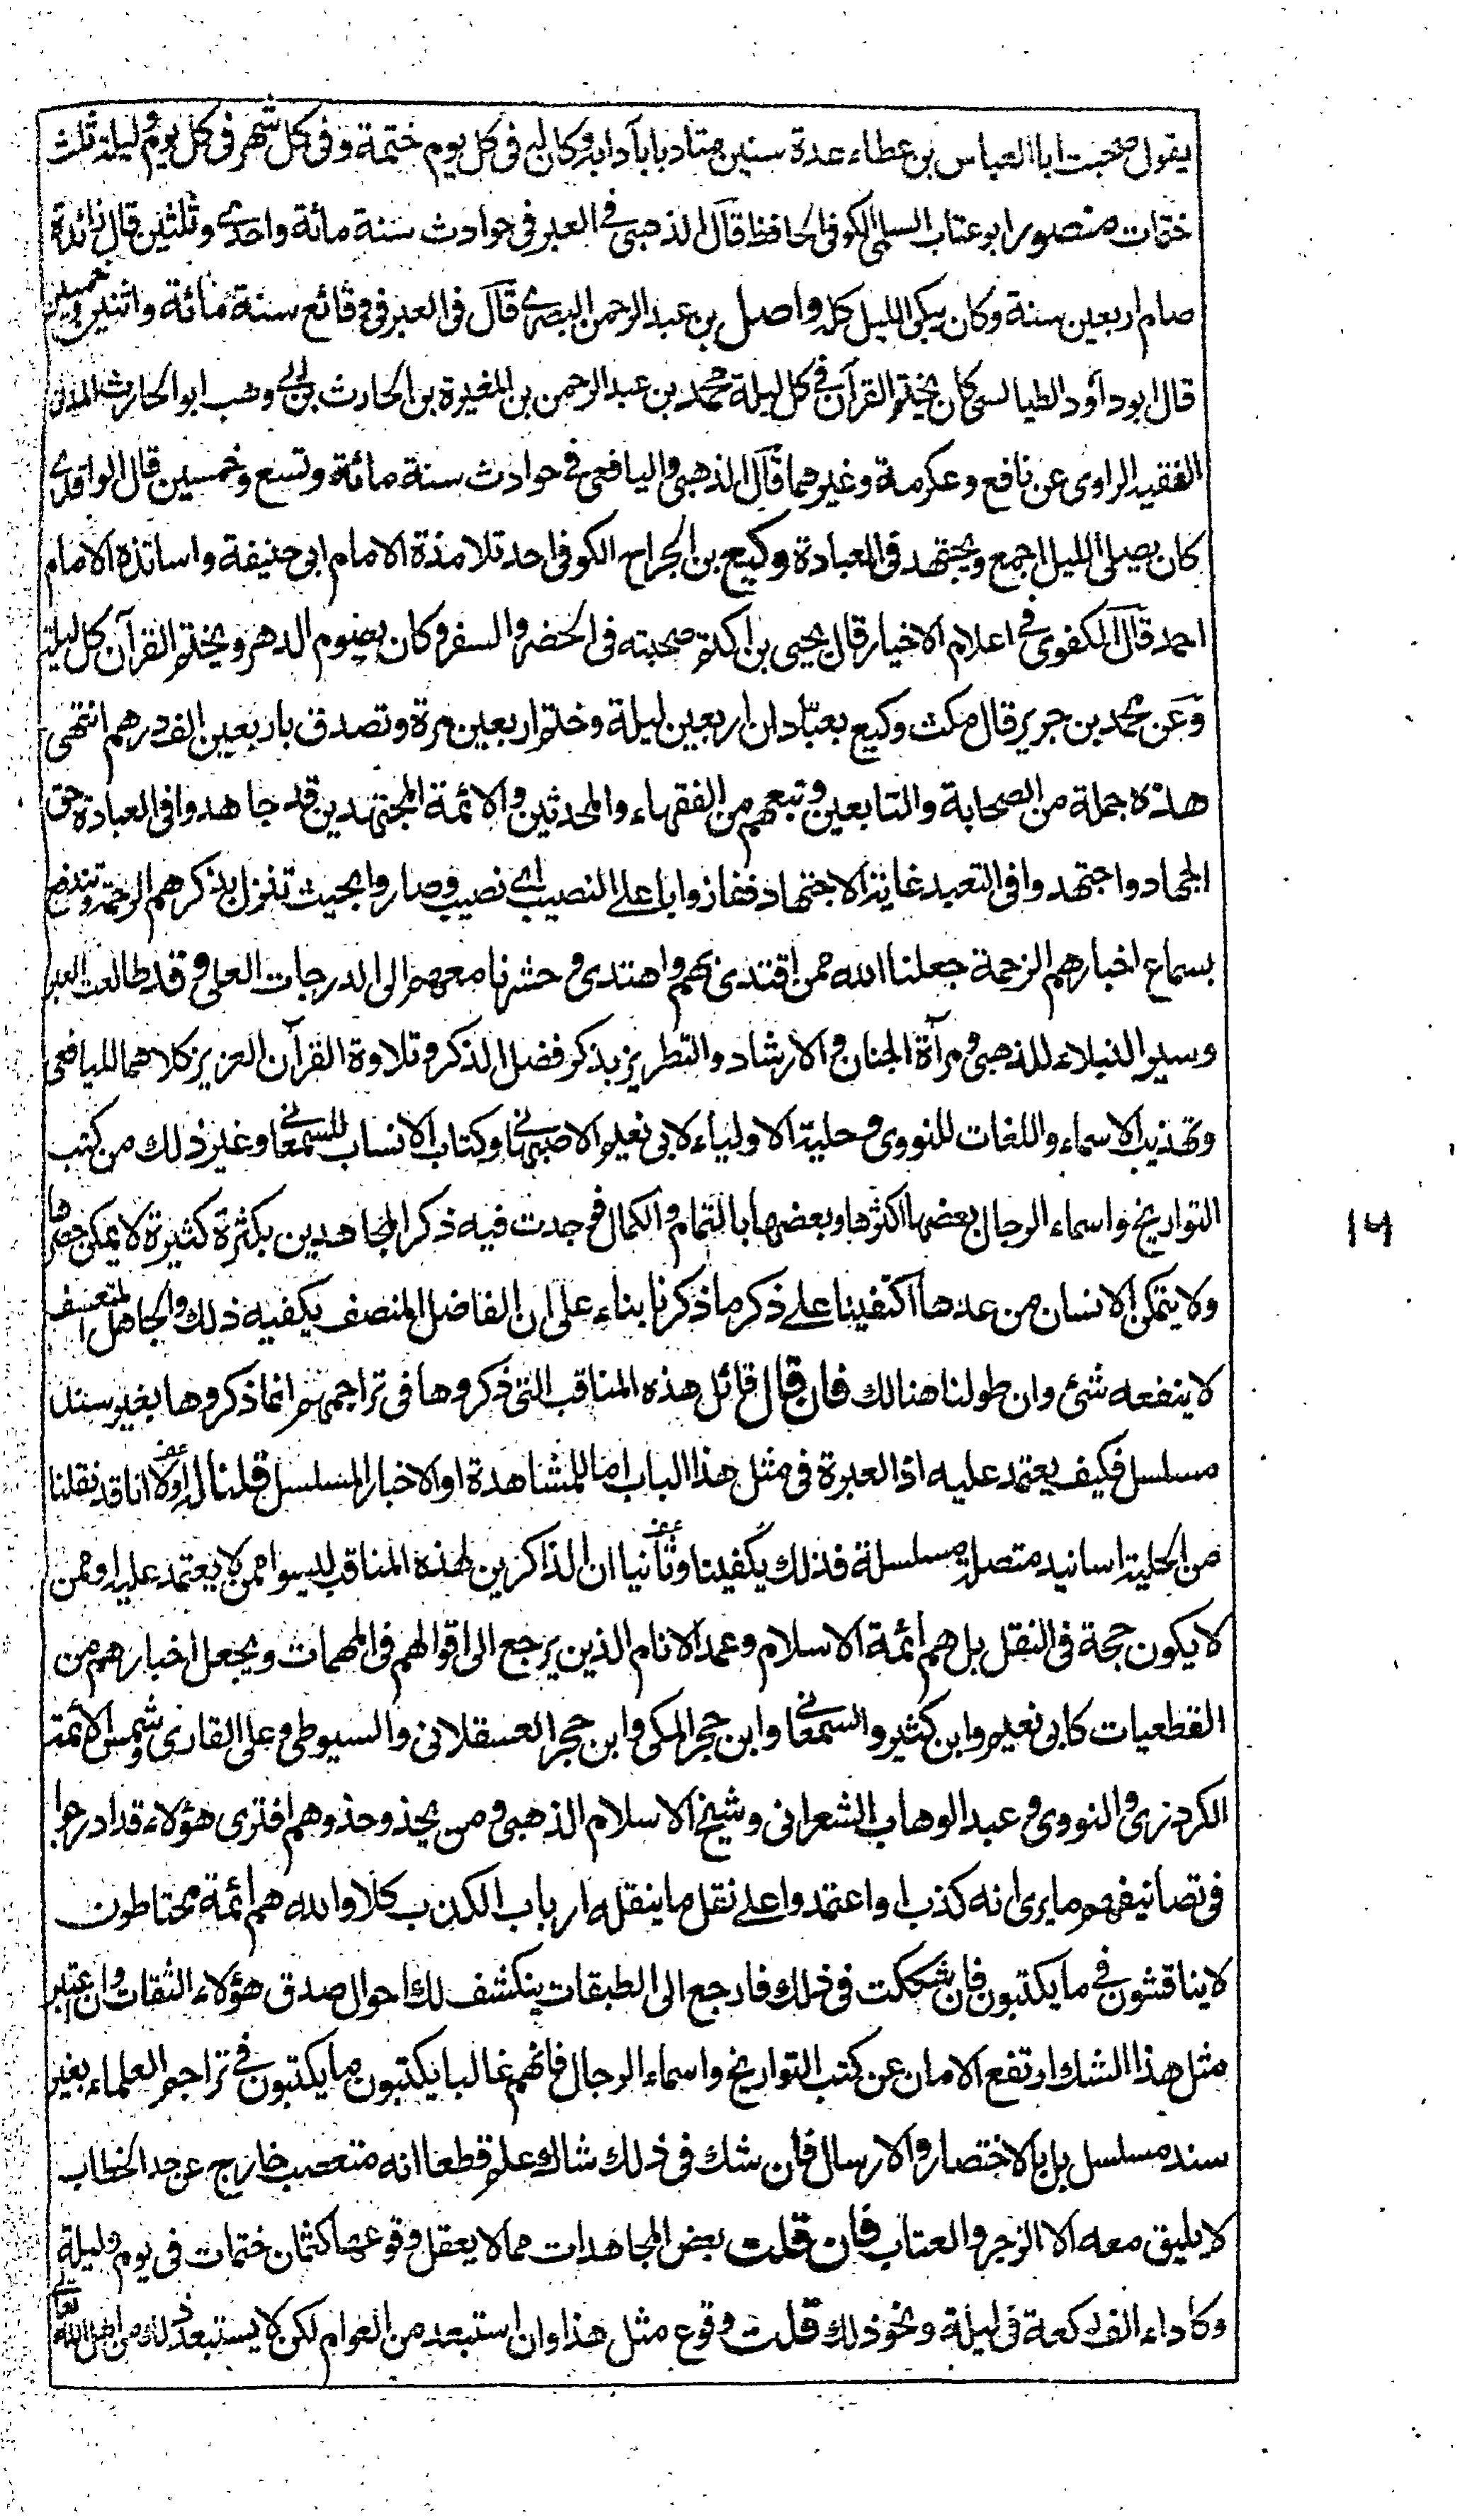 يقول صحبت ابا العباس بن عطاء عدة سنين متادبا بآدابه وكان له فى كل يوم ختمة وفى كل شهر فى كل يوم وليلة ثلث
ختمات منصور ابو عتاب السلمى الكوفى الحافظ قال الذهبى فى العبر فى حوادث سنة مائة واحدى وثلثين قال زائدة
صام اربعين سنة وكان يبكى الليل كله واصل بن عبد الرحمن البصرى قال فى العبر فى وقائع سنة مائة واثنين وخمسين
قال ابو داود الطيالسى كان يختم القرآن فى كل ليلة محمد بن عبد الرحمن بن المغيرة بن الحارث بن ابى وهب ابو الحارث المدنى
الفقيه الراوى عن نافع وعكرمة وغيرهما قال الذهبى واليافعى فى حوادث سنة مائة وتسع وخمسين قال الواقدى
كان يصلى الليل اجمع ويجتهد فى العبادة وكيع بن الجراح الكوفى احد تلامذة الامام ابى حنيفة واساتذه الامام
احمد قال الكفوى فى اعلام الاخيار قال يحيى بن اكثم صحبته فى الحضر والسفر وكان يصوم الدهر ويختم القرآن كل ليلة
وعن محمد بن جرير قال مكث وكيع بعبّادان اربعين ليلة وختم اربعين مرة وتصدق باربعين الف درهم انتهى
هذه جملة من الصحابة والتابعين وتبعهم من الفقهاء والمحدثين والائمة المجتهدين قد جاهدوا فى العبادة حق
الجهاد واجتهدوا فى التعبد غاية الاجتهاد ففازوا باعلى النصيب اى نصيب وصاروا بحيث تنزل بذكرهم الرحمة وتندفع
بسماع اخبارهم الزحمة جعلنا الله ممن اقتدى بهم واهتدى وحشرنا معهم الى الدرجات العلى وقد طالعت العبر
وسير النبلاء للذهبى ومرآة الجنان والارشاد والتطريز بذكر فضل الذكر وتلاوة القرآن العزيز كلاهما لليافعى
وتهذيب الاسماء واللغات للنووى وحلية الاولياء لابى نعيم الاصبهانى وكتاب الانساب للسمعانى وغير ذلك من كتب
التواريخ واسماء الرجال بعضها اكثرها وبعضها بالتمام والكمال فوجدت فيه ذكر المجاهدين بكثرة كثيرة لا يمكن حصرها
ولا يتمكن الانسان من عدها اكتفينا على ذكر ما ذكرنا بناء على ان الفاضل المنصف يكفيه ذلك والجاهل المتعسف
لا ينفعه شئ وان طولنا هنالك فان قال قائل هذه المناقب التى ذكروها فى تراجمهم انما ذكروها بغير سند
مسلسل فكيف يعتمد عليه اذ العبرة فى مثل هذا الباب اما للمشاهدة او الاخبار المسلسل قلنا له اولا انا قد نقلنا
من الحلية اسانيد متصلة مسلسلة فذلك يكفينا وثانيا ان الذاكرين لهذه المناقب ليسوا ممن لا يعتمد عليه او ممن
لا يكون حجة فى النقل بل هم ائمة الاسلام وعمد الانام الذين يرجع الى اقوالهم فى المهمات ويجعل اخبارهم من
القطعيات كابى نعيم وابن كثير والسمعانى وابن حجر المكى وابن حجر العسقلانى والسيوطى وعلى القارى وشمس الائمة
الكردرى والنووى وعبد الوهاب الشعرانى وشيخ الاسلام الذهبى ومن يحذو حذوهم افترى هؤلاء قد ادرجوا
فى تصانيفهم ما يرى انه كذب او اعتمدوا على نقل ما ينقله ارباب الكذب كلا والله هم ائمة محتاطون
لا يناقشون فى ما يكتبون فان شككت فى ذلك فارجع الى الطبقات ينكشف لك احوال صدق هؤلاء الثقات وان اعتبر
مثل هذا الشك ارتفع الامان عن كتب التواريخ واسماء الرجال فانهم غالبا يكتبون ما يكتبون فى تراجم العلماء بغير
سند مسلسل بل بالاختصار والارسال فان شك فى ذلك شاك علم قطعا انه متعصب خارج عن حد الخطاب
لا يليق معه الا الزجر والعتاب فان قلت بعض المجاهدات مما لا يعقل وقوعها كثمان ختمات فى يوم وليلة
وكاداء الف ركعة فى ليلة ونحو ذلك قلت وقوع مثل هذا وان استبعد من العوام لكن لا يستبعد ذلك من اهل الله تعالى
١٦